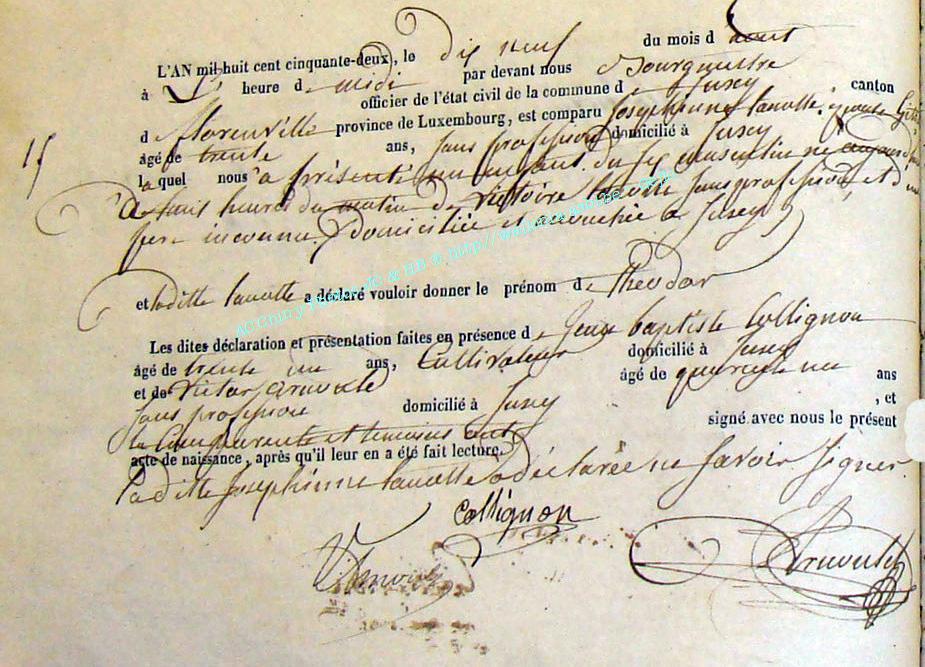 L'AN mil huit cent cinquante-deux, le dix neuf du mois d'aout
à L' heure de midi par devant nous Bourgmestre
officier de l'état civil de la commune de Jusey canton
de florenville province de Luxembourg, est comparu Josephinne lanotte, épouse
15
âgé de trente ans, sans profession domicilié à Jusey
la quel nous a présenté un enfant du sex masculin né
à huit heures du matin de Victoire sans profession, et d'un
pere inconnu, domiciliée et accouchée à Jusey
et laditte lanotte a déclaré vouloir donner le prénom de Theodor
Les dites déclaration et présentation faites en présence de Jean baptiste Collignon
âgé de trente un ans, Cultivateur domicilié à Jusey
et de Victor arnould âgé de quarante un ans
sans profession domicilié à Jusey , et
la Comparante et temoins ont signé avec nous le présent
acte de naissance, après qu'il leur en a été fait lecture.
laditte Josephinne lanotte a déclarée ne savoir signer
Collignon